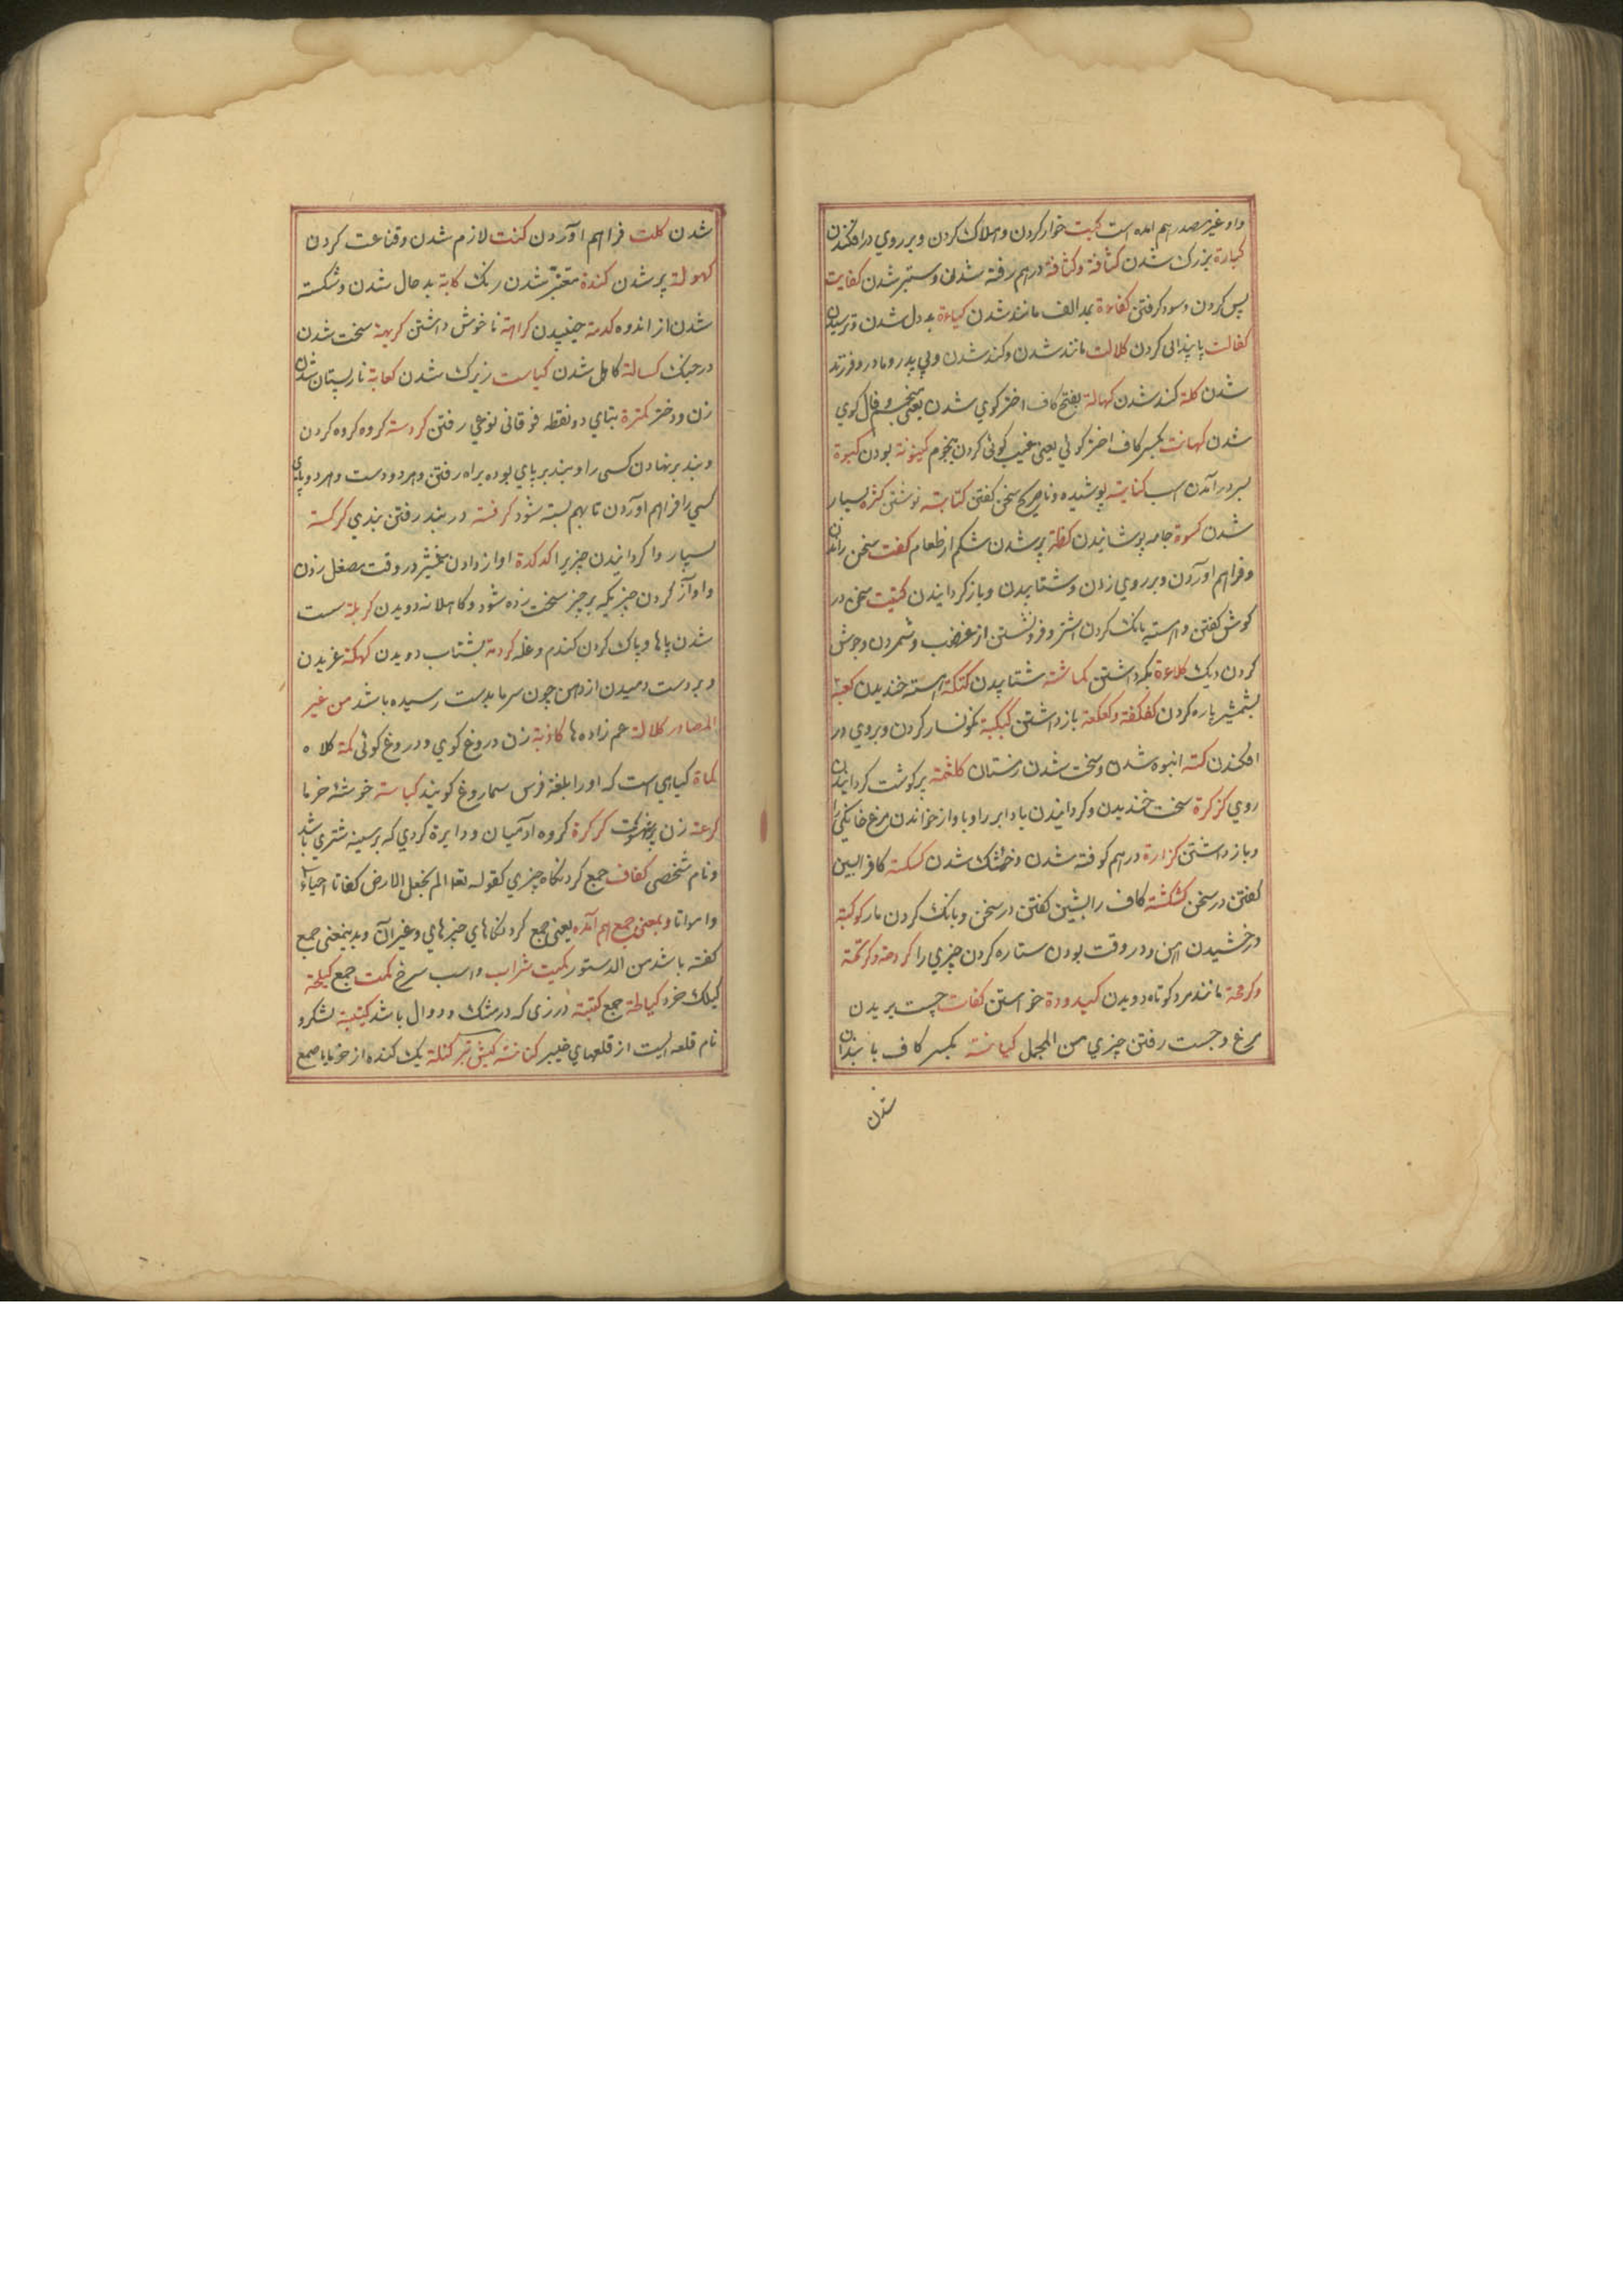 واو غیر مصدر هم امده است کبت خوار کردن و هلاک کردن و بر روی درافکندن
کبارة بزرک شدن کثافة وکثافة درهم رفته شدن وستبر شدن کفایت
بس کردن وسود کرفتن کفاءة بمد الف مانند شدن کیاءة بد دل شدن وترسیدن
کفالت پایندانی کردن کلالت مانده شدن وکند شدن وبی پدر ومادر وفرزند
شدن کلة کند شدن کهالة بفتح کاف اختر کوی شدن یعنی منجم وفال کوی
شدن کهانت بکسر کاف اختر کوئی یعنی غیب کوئی کردن بنجوم کینونة بودن کبوة
بسر در آمدن اسب کنایة پوشیده وناصریح سخن کفتن کتابة نوشتن کثرة بسیار
شدن کسوة جامه پوشانیدن کظة پر شدن شکم از طعام کفت سخن راندن
وفراهم اوردن وبر روی زدن وشتابیدن وباز کردانیدن کتیت سخن در
کوش کفتن واهسته بانک کردن اشتر وفرونشستن از غضب وشمردن وجوش
کردن دیک کلاءة نکهداشتن کماشة شتابیدن کتکتة اهسته خندیدن کعبة
بشمشیر پاره کردن کفکفة وکعکعة باز داشتن کبکبة نکونسار کردن وبروی در
افکندن کتة انبوه شدن وسخت شدن زمستان کلثمة پر کوشت کردانیدن
روی کرکرة سخت خندیدن وکردانیدن باد ابر را وباواز خواندن مرغ خانکی را
وباز داشتن کزازة درهم کوفته شدن وخشک شدن کسکسة کاف را بسین
کفتن در سخن کشکشة کاف را بشین کفتن در سخن وبانک کردن مار کوکبة
درخشیدن اهن ودر وقت بودن ستاره کردن چیزی را کردحة وکرتمة
وکرمحة مانند مرد کوتاه دویدن کیدودة خواستن کفات چست پریدن
مرغ وجست رفتن چیزی من المجمل کیانة بکسر کاف پایندان
شدن
شدن کلت فراهم اوردن کنت لازم شدن وقناعت کردن
کهولة پیر شدن کندة متغیر شدن رنک کابة بد حال شدن وشکسته
شدن از اندوه کدمة جنبیدن کراهة ناخوش داشتن کریهة سخت شدن
در جنک کسالة کاهل شدن کیاست زیرک شدن کعابة نارپستان شدن
زن ودختر کمترة بتای دو نقطه فوقانی نوعی رفتن کردسة کروه کروه کردن
وبند بر نهادن کسی را وبند بر پای بوده براه رفتن وهر دو دست وهر دو پای
کسی را فراهم اوردن تا بهم بسته شود کرفسة در بند رفتن بندی کرکسة
بسیار وا کردانیدن چیزیرا کدکدة اواز دادن شمشیر در وقت مصقل زدن
واواز کردن چیزیکه بر چیز سخت زده شود وکاهلانه دویدن کربلة سست
شدن پاها وپاک کردن کندم وغله کردمة بشتاب دویدن کهکهة غریدن
وبر دست دمیدن از دهن چون سرما بدست رسیده باشد من غیر
المصادر کلالة عم زاده ها کاذبة زن دروغ کوی ودروغ کوئی کمة کلاه
کماة کیاهی است که او را بلغة فرس سماروغ کویند کباسة خوشه خرما
کرعة زن پر شهوت کرکرة کروه ادمیان ودایرة کردی که بر سینه شتر باشد
ونام شخصی کفاف جمع کردنکاه چیزی کقوله تعا الم نجعل الارض کفاتا احیاء
وامواتا وبمعنی جمع هم امده یعنی جمع کردنکاهای چیزهای وغیر آن وبدینمعنی جمع
کفته باشد من الدستور کمیت شراب واسب سرخ کمت جمع کیلجة
کیلک خرد کیاطة جمع کتبة درزی که در مشک ودوال باشد کتیبة لشکر و
نام قلعه ایست از قلعهای خیبر کنانة کیش تیر کتلة یک کنده از خرما یا صمغ